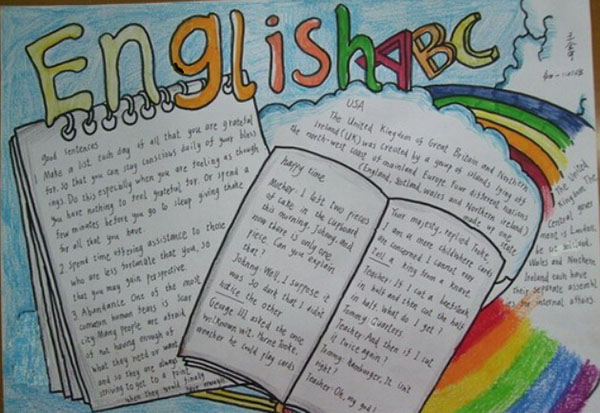 English ABC
Good sentences
1 Make a list each day of all that you are grateful
for. So that you can stay conscious daily of your bless
ings. Do this especially when you are feeling as though
you have nothing to feel grateful for. Or spend a
few minutes before you go to sleep giving thake
for all that you have.
2. Spend time offering assistance to those
who are less fortunate that you, so
that you may gain perspective.
3 Abandance One of the most
common human tears is scar
city Many people are afraid
of not having enough of
what they need or want
and so they are always
striving to get to a point
when they would finally
happy time
Mother: I left two pieces
of cake in the cupboard
this morning, Johnny, and
now there is only one
piece. Can you explain
that?
Johnny: Well, I suppose it
was so dark that I didn't
notice the other
George III asked the once
wellknown wit. Horne Tooke,
whether he could play cards
Your majesty, replied Tooke,
I am a mere child where cards
are concerned I cannot even
tell a king from a knave.
Teacher: If I cut a beefsteak
in half and then cut the half
in half. what do I get?
Tommy: Quarters
Teacher: And then if I cut
it twice again?
Tommy Hamburger, It isn't
right?
Teacher: Oh, my god!
USA
The United Kingdom of Great Britain and Northern
Ireland (UK) was created by a group of islands lying off
the north-west coast of mainland Europe Four different nations
(England, Scotland, Wales and Northern Ireland)
made up one
state
The United
Kingdom The
Central gover
ment is London,
Wales and Northern
Ireland each have
their separate assembl
internal affairs